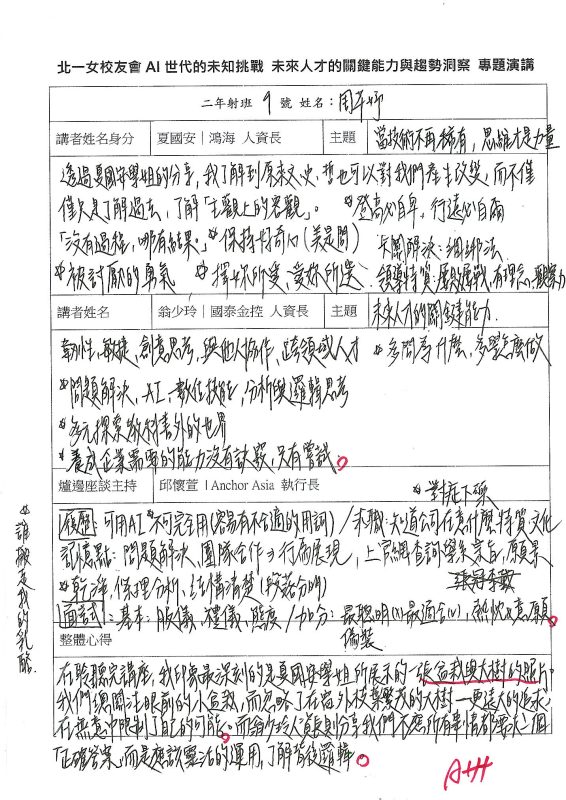 北一女校友會 AI 世代的未知挑戰 未來人才的關鍵能力與趨勢洞察 專題演講
二年射班 9 號 姓名：周
講者姓名身分 夏國安｜鴻海 人資長 主題 當技術不再稀有，思維才是力量
透過夏國安學姐的分享，我了解到原來文、史、哲也可以對我們產生改變，而不僅
僅只是了解過去，了解「主觀上的客觀」。 *登高必自卑，行遠必自邇
「沒有過程，哪有結果。」 *保持好奇心(美是問) 卡關解決：綑綁法
*被討厭的勇氣 *擇妳所愛，愛妳所選 領導特質：屢敗屢戰，有理念，觀察力
講者姓名 翁少玲｜國泰金控 人資長 主題 未來人才的關鍵能力
韌性，敏捷，創意思考，與他人協作，跨領域人才 *多問為什麼，多學怎麼做
*問題解決，AI，數位技能，分析與邏輯思考
*多元探索教科書外的世界
*養成企業需要的能力沒有訣竅，只有嘗試。
爐邊座談主持 邱懷萱｜Anchor Asia 執行長 *對症下藥
履歷：可用AI *不可完全用(容易有不合適的用詞) / 求職：知道公司在意什麼特質、文化
記憶點：問題解決，團隊合作→行為展現，上官網查詢學系宗旨，願景
*乾淨，條理分析，結構清楚(段落分明)
面試：基本：服儀，禮儀，態度 / 加分：最聰明(x)最適合(v)，熱忱、意願
偽裝
*誰搬走我的乳酪
整體心得
在聆聽完講座，我印象最深刻的是夏國安學姐所展示的一張盆栽與大樹的照片，
我們總關注眼前的小盆栽，而忽略了在窗外枝葉繁茂的大樹—更遠的追求，
在無意中限制了自己的可能。而翁少玲人資長則分享我們不應所有事情都要求一個
「正確答案」，而是應該靈活的運用，了解背後邏輯。
A++